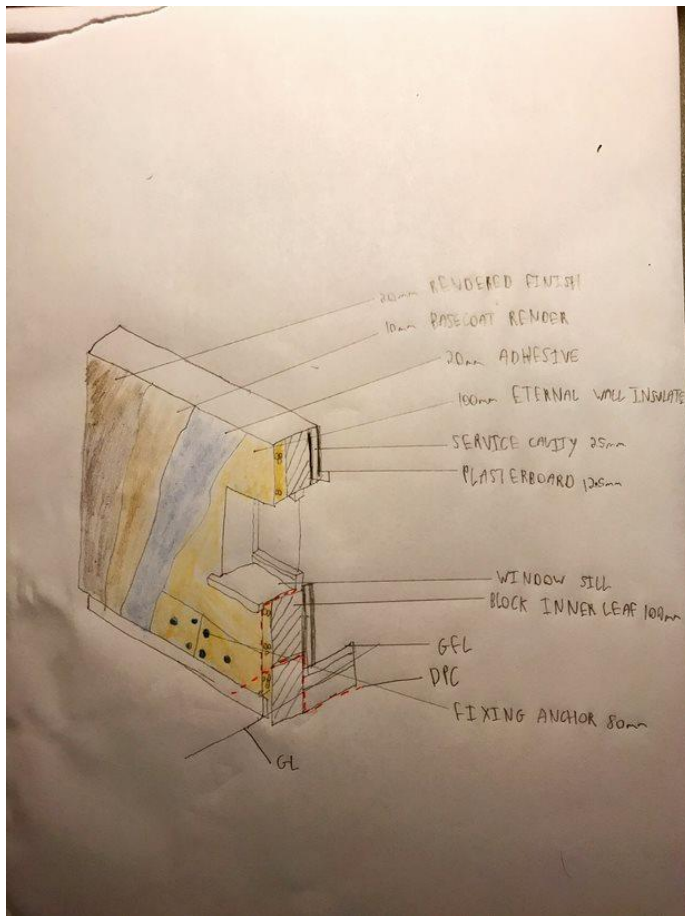 20mm RENDERED FINISH
10mm BASECOAT RENDER
20mm ADHESIVE
100mm ETERNAL WALL INSULATE
SERVICE CAVITY 25mm
PLASTERBOARD 12.5mm
WINDOW SILL
BLOCK INNER LEAF 100mm
GFL
DPC
FIXING ANCHOR 80mm
GL